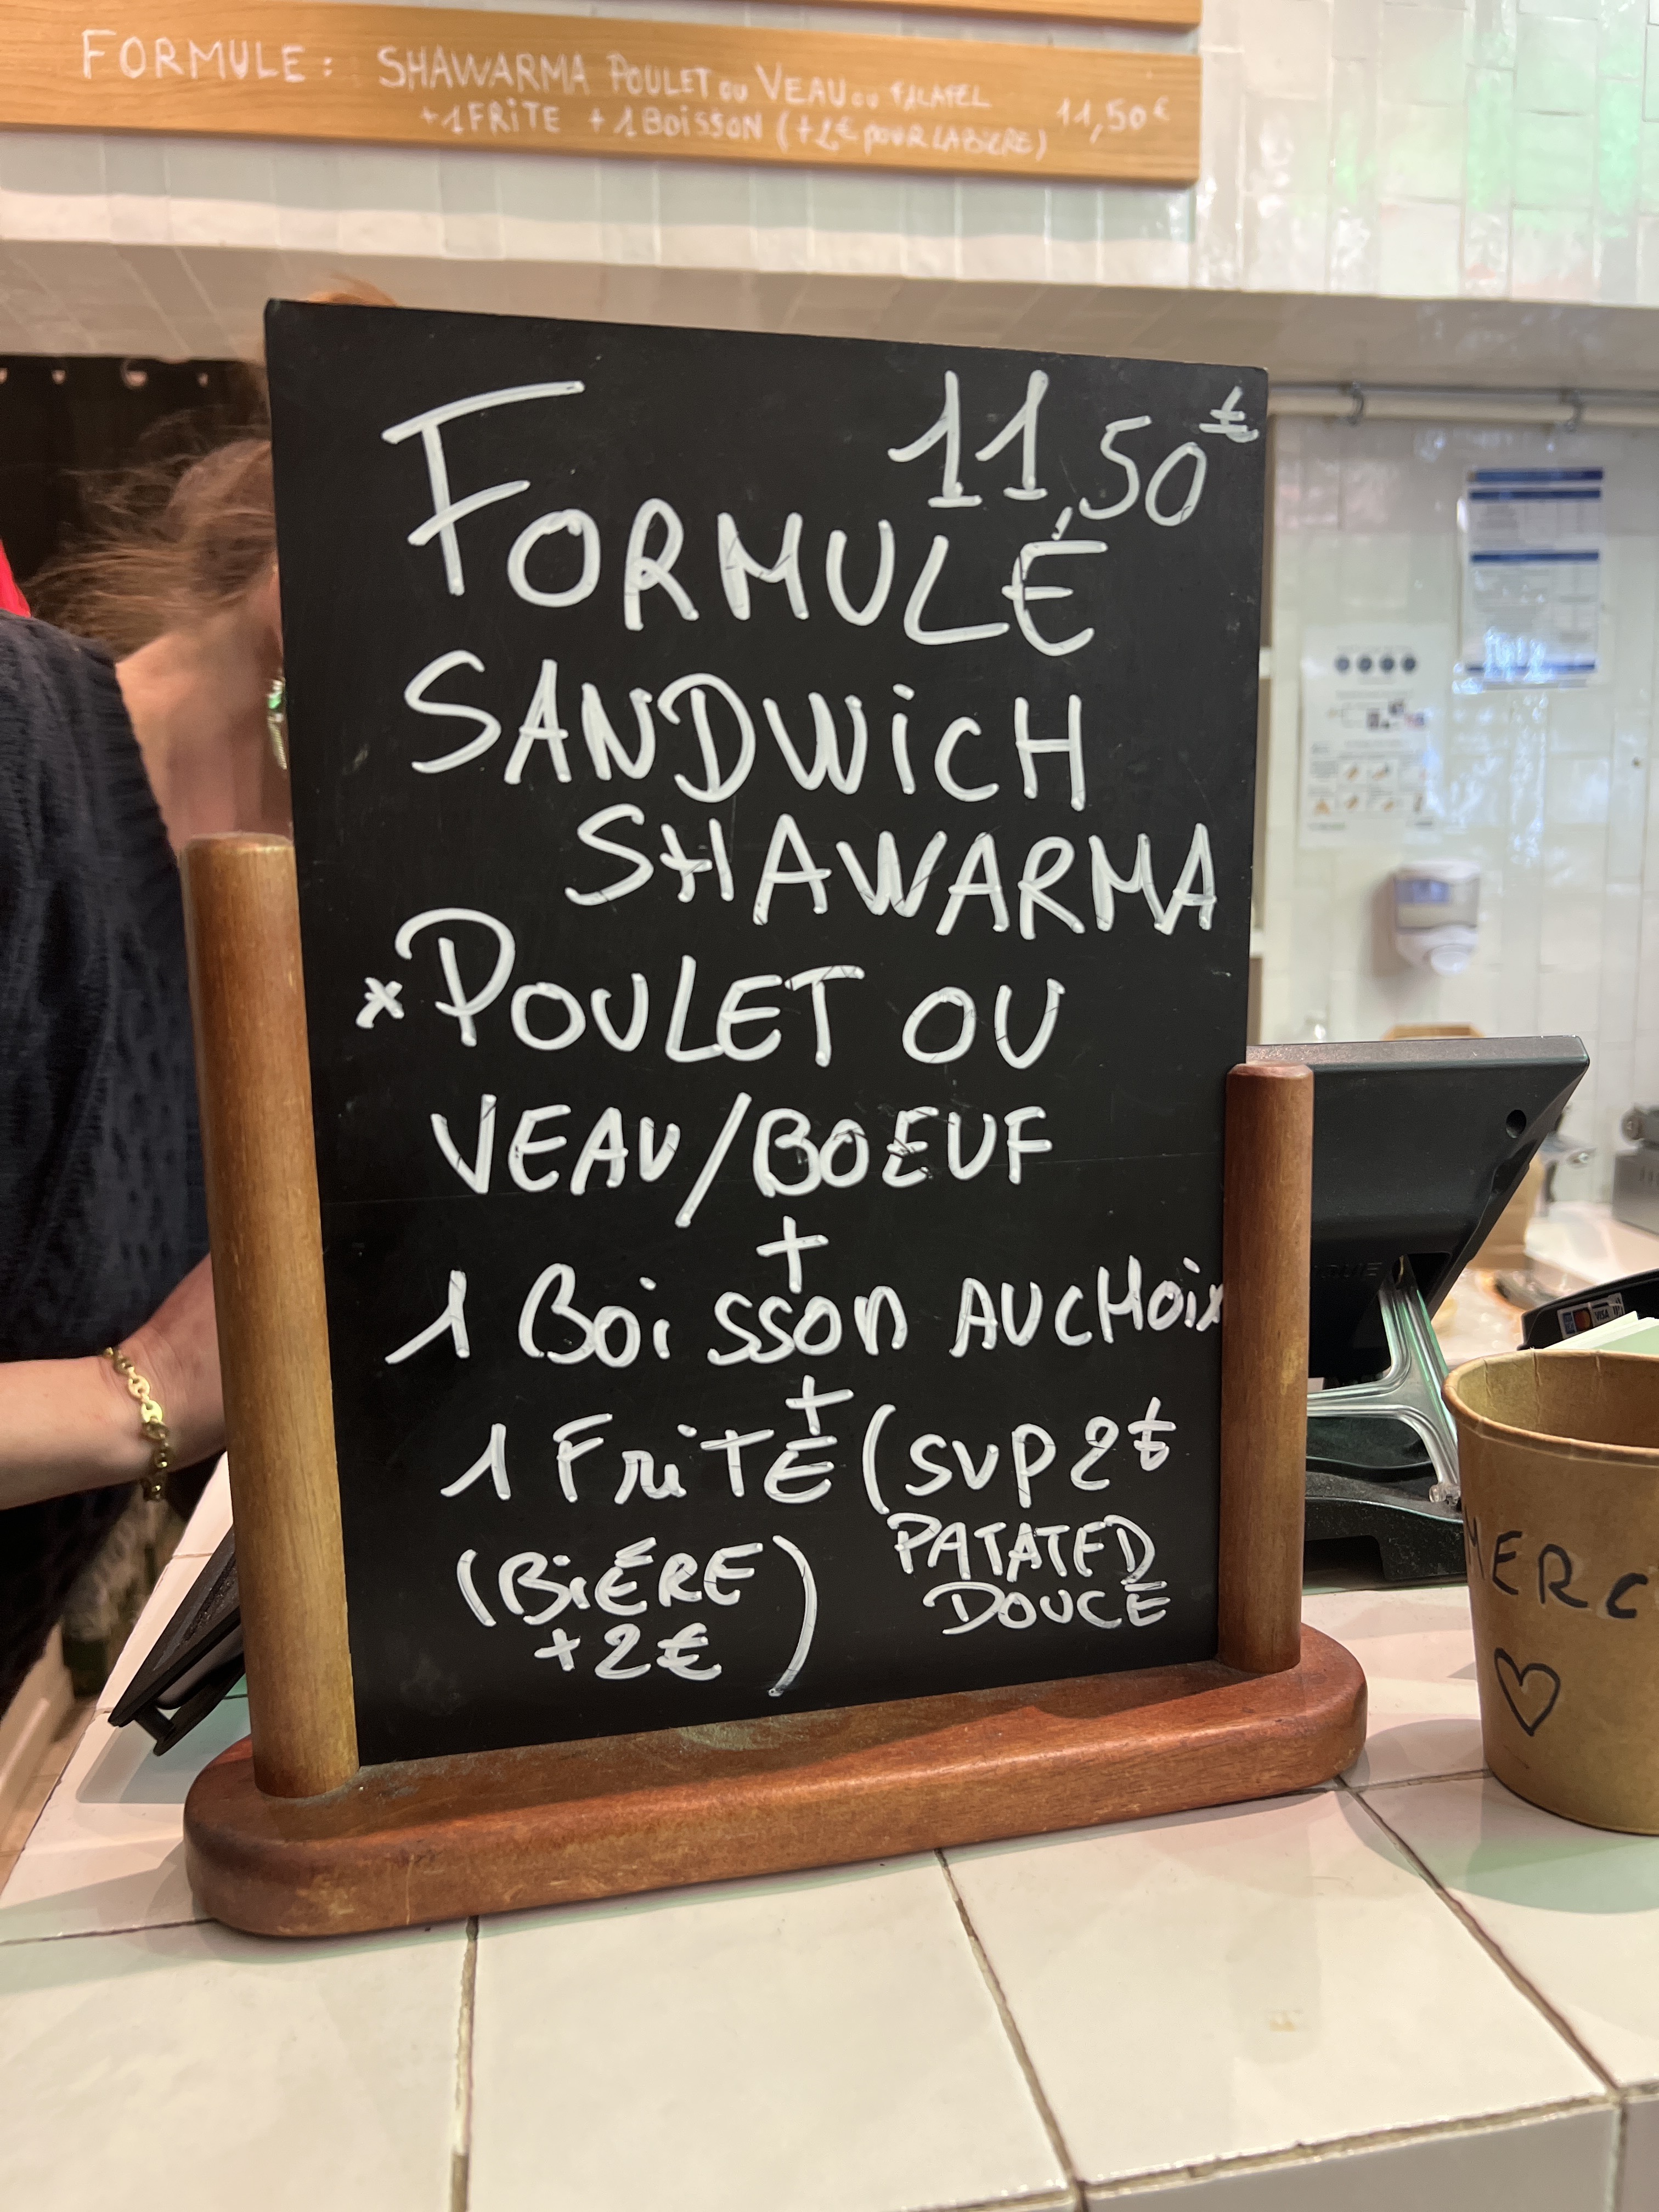 FORMULE : SHAWARMA POULET OU VEAU OU FALAFEL
+1 FRiTE +1 BOiSSON (+2€ POUR LA BIERE) 11,50€
11,50€
FORMULÉ
SANDWiCH
SHAWARMA
x POULET OU
VEAU/BOEUF
+
1 Boisson AU CHOix
+
1 FriTE (SUP 2€
PATATED
DOUCE
(BiÉRE
+2€)
MERC